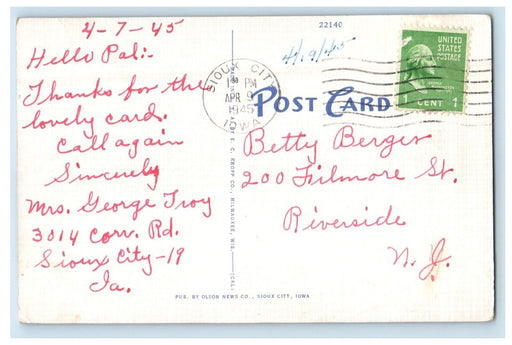 4-7-45
Hello Pal:-
Thanks for the
lovely card.
Call again
Sincerely
Mrs. George Troy
3014 Corr. Rd.
Sioux City-19
Ia.
22140
4/9/45
SIOUX CITY
1 PM
APR 9
1945
IOWA
POST CARD
UNITED
STATES
POSTAGE
CENT 1
Betty Berger
200 Filmore St.
Riverside
N. J.
E. C. KROPP CO., MILWAUKEE, WIS.
PUB. BY OLSON NEWS CO., SIOUX CITY, IOWA